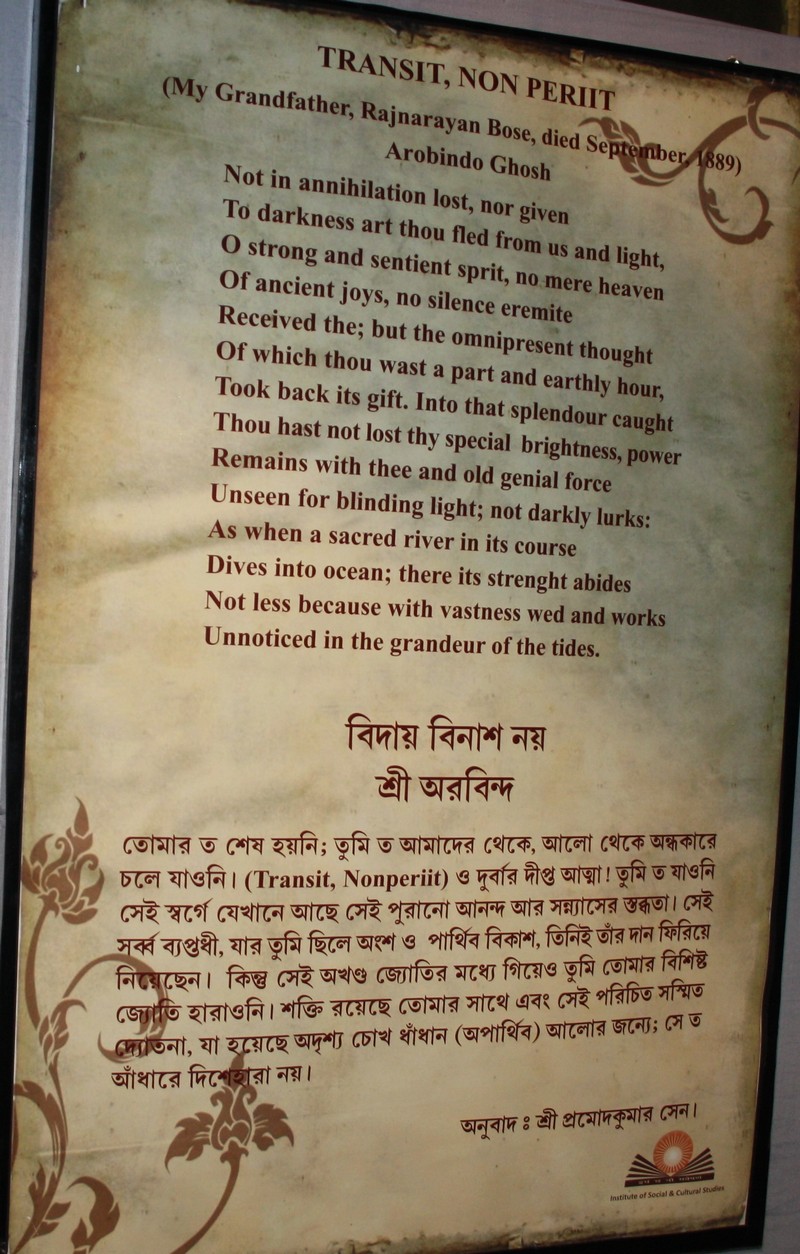 TRANSIT, NON PERIIT
(My Grandfather, Rajnarayan Bose, died September, 1889)
Arobindo Ghosh
Not in annihilation lost, nor given
To darkness art thou fled from us and light,
O strong and sentient sprit, no mere heaven
Of ancient joys, no silence eremite
Received the; but the omnipresent thought
Of which thou wast a part and earthly hour,
Took back its gift. Into that splendour caught
Thou hast not lost thy special brightness, power
Remains with thee and old genial force
Unseen for blinding light; not darkly lurks:
As when a sacred river in its course
Dives into ocean; there its strenght abides
Not less because with vastness wed and works
Unnoticed in the grandeur of the tides.
বিদায় বিনাশ নয়
শ্রী অরবিন্দ
তোমার ত শেষ হয়নি; তুমি ত আমাদের থেকে, আলো থেকে অন্ধকারে
চলে যাওনি। (Transit, Nonperiit) ও দুর্বার দীপ্ত আত্মা! তুমি ত যাওনি
সেই স্বর্গে যেখানে আছে সেই পুরানো আনন্দ আর সন্ন্যাসের স্তব্ধতা। সেই
সর্ব্ব ব্যপ্তধী, যার তুমি ছিলে অংশ ও পার্থিব বিকাশ, তিনিই তাঁর দান ফিরিয়ে
নিয়েছেন। কিন্তু সেই অখণ্ড জ্যোতির মধ্যে গিয়েও তুমি তোমার বিশিষ্ট
জ্যোতি হারাওনি। শক্তি রয়েছে তোমার সাথে এবং সেই পরিচিত সম্মিত
দ্যোতনা, যা হয়েছে অদৃশ্য চোখ ধাঁধান (অপার্থিব) আলোর জন্যে; সে ত
আঁধারে দিশেহারা নয়।
অনুবাদ ঃ শ্রী প্রমোদকুমার সেন।
Institute of Social & Cultural Studies